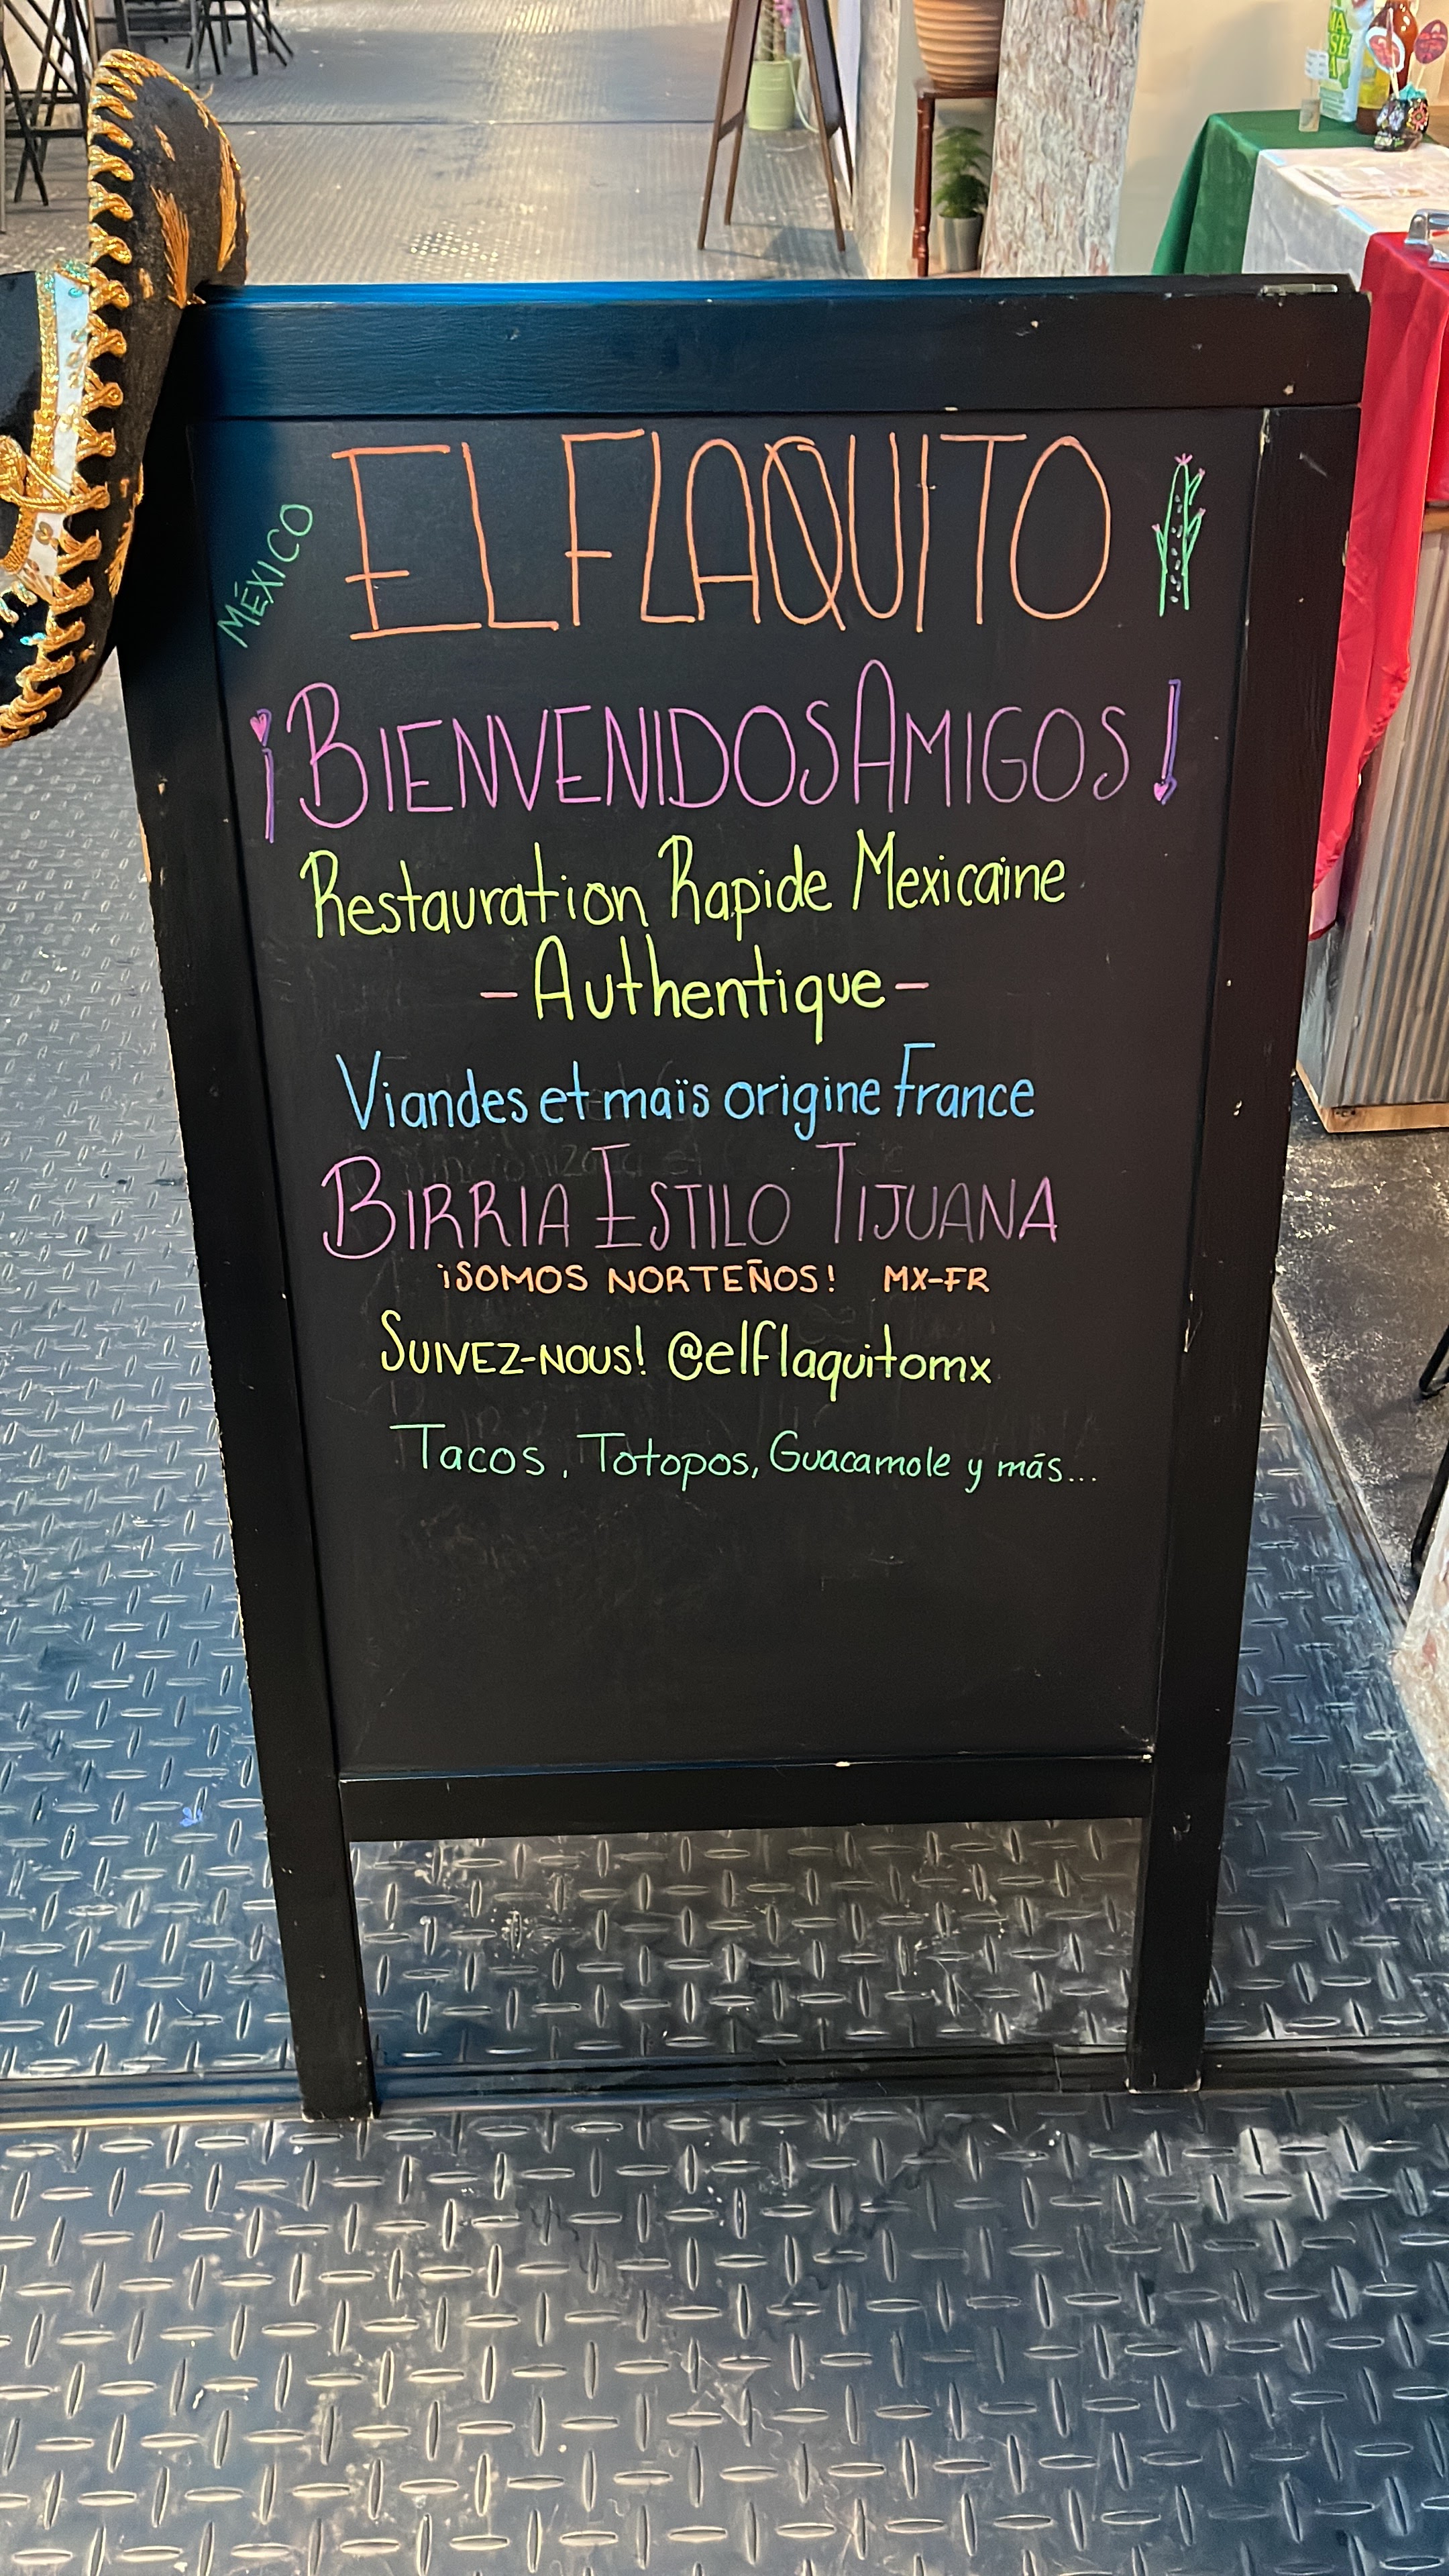 MÉXICO
EL FLAQUITO
¡BIENVENIDOS AMIGOS!
Restauration Rapide Mexicaine
- Authentique -
Viandes et maïs origine France
BIRRIA ESTILO TIJUANA
¡SOMOS NORTEÑOS! MX-FR
SUIVEZ-NOUS! @elflaquitomx
Tacos, Totopos, Guacamole y más...